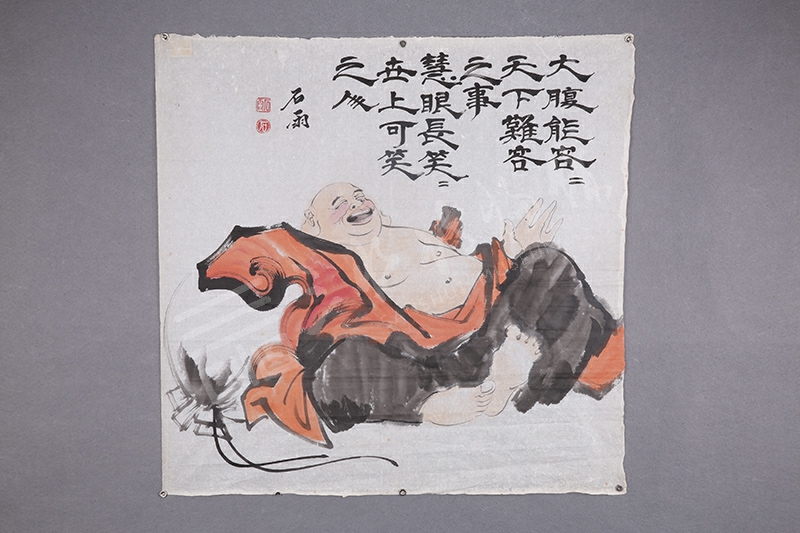 大腹能容〻
天下難容
之事
慧眼長笑〻
世上可笑
之人
石雨